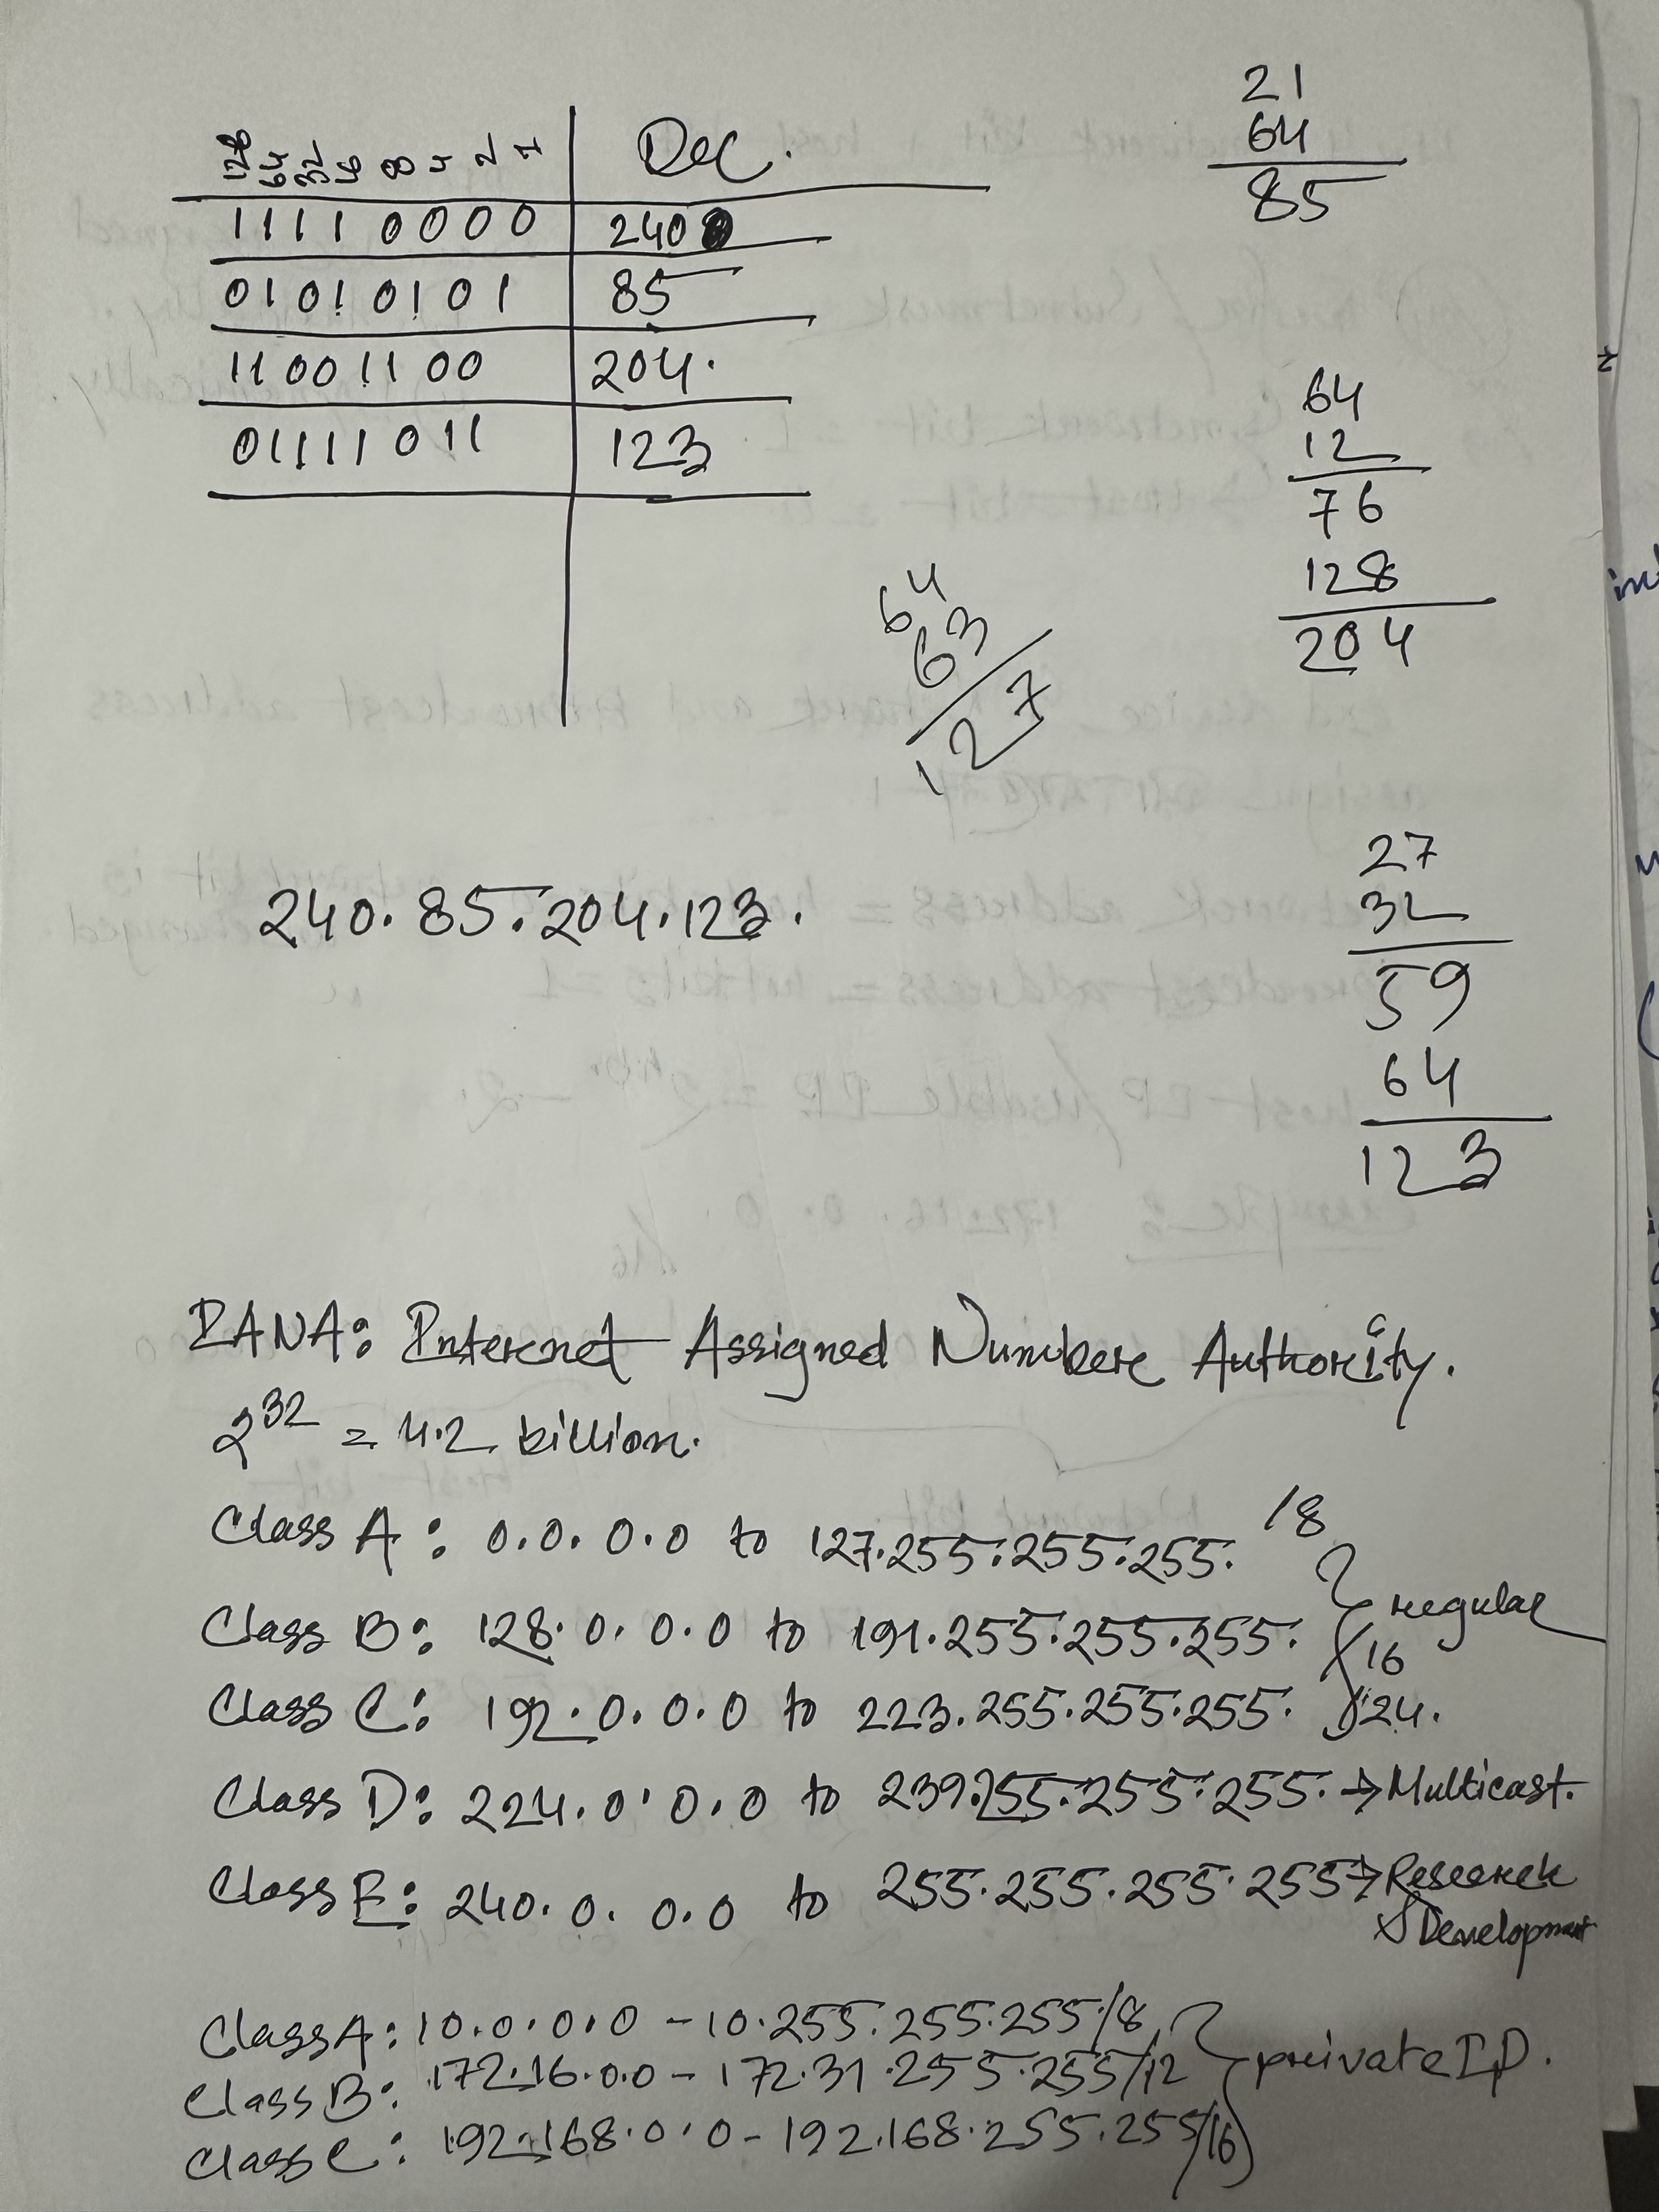 128 64 32 16 8 4 2 1 Dec.
11110000 240
01010101 85
11001100 204.
01111011 123
21
64
85
64
12
76
128
204
64
63
127
240.85.204.123.
27
32
59
64
123
IANA: Internet Assigned Numbers Authority.
2^32 = 4.2 billion.
Class A: 0.0.0.0 to 127.255.255.255. /8
Class B: 128.0.0.0 to 191.255.255.255. /16 regular
Class C: 192.0.0.0 to 223.255.255.255. /24.
Class D: 224.0.0.0 to 239.255.255.255. → Multicast.
Class E: 240.0.0.0 to 255.255.255.255 → Research
& Development
Class A: 10.0.0.0 - 10.255.255.255/8
Class B: 172.16.0.0 - 172.31.255.255/12 private IP.
Class C: 192.168.0.0 - 192.168.255.255/16